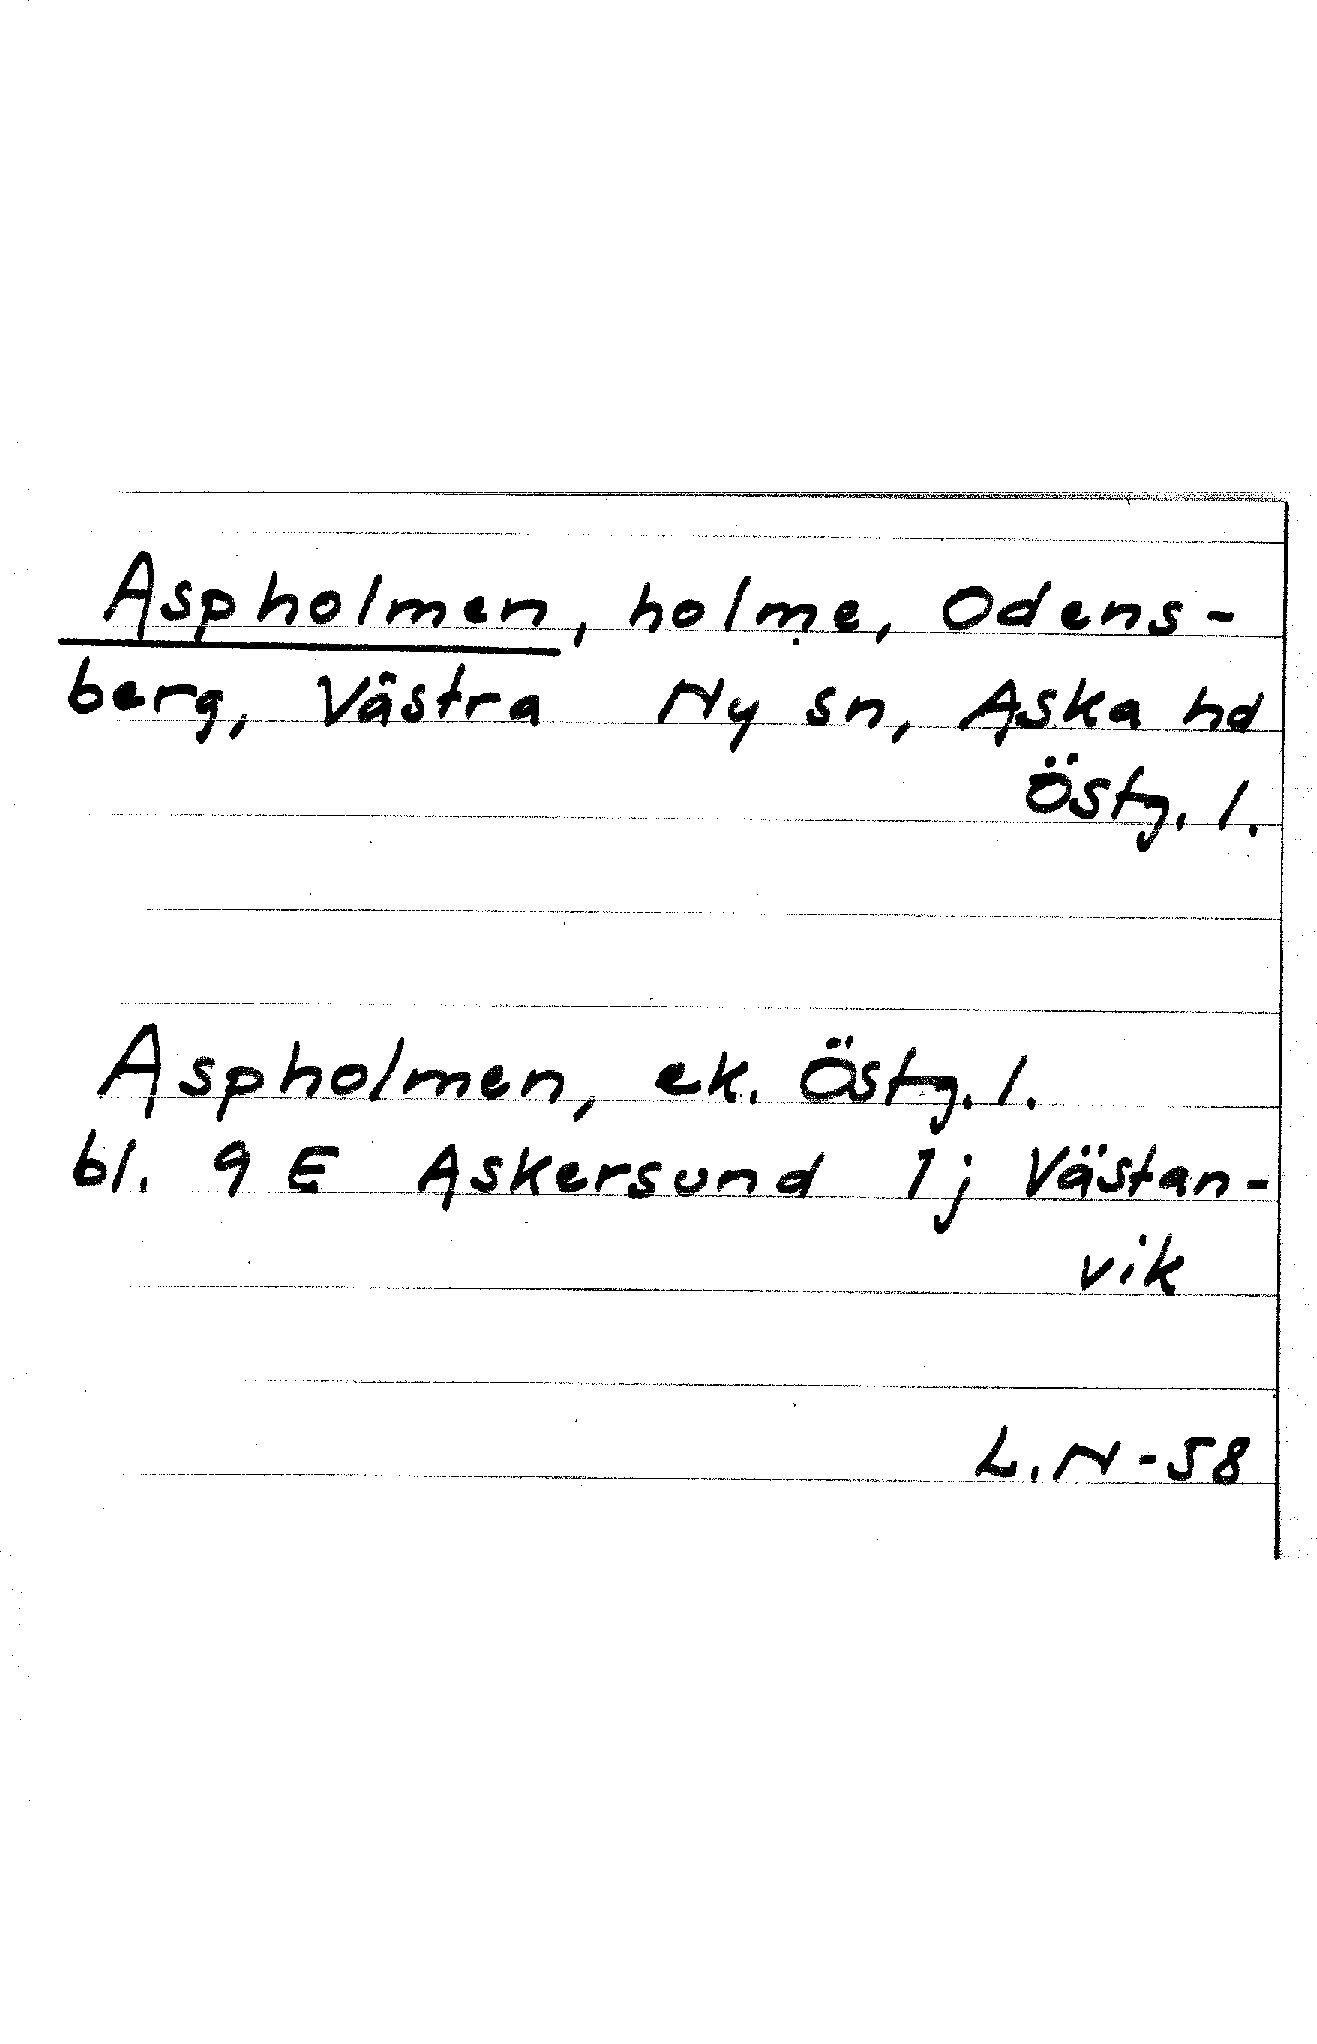 Aspholmen, holme, Odens-
berg, Västra Ny sn, Aska hd
Östg. l.
Aspholmen, ek. Östg. l.
bl. 9 E Askersund 1j Västan-
vik
L.N-58